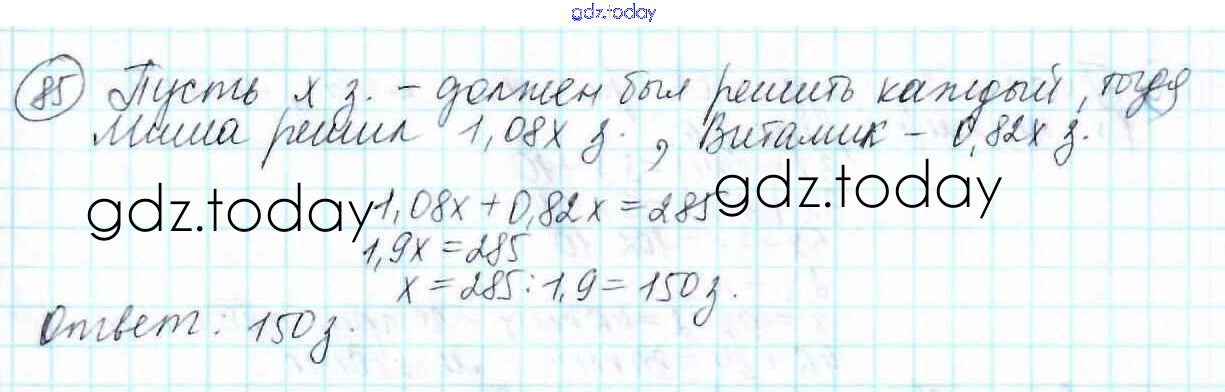 gdz.today
85 Пусть x з. – должен был решить каждый, тогда
Миша решил 1,08x з., Виталик – 0,82x з.
gdz.today 1,08x + 0,82x = 285 gdz.today
1,9x = 285
x = 285 : 1,9 = 150 з.
Ответ: 150 з.